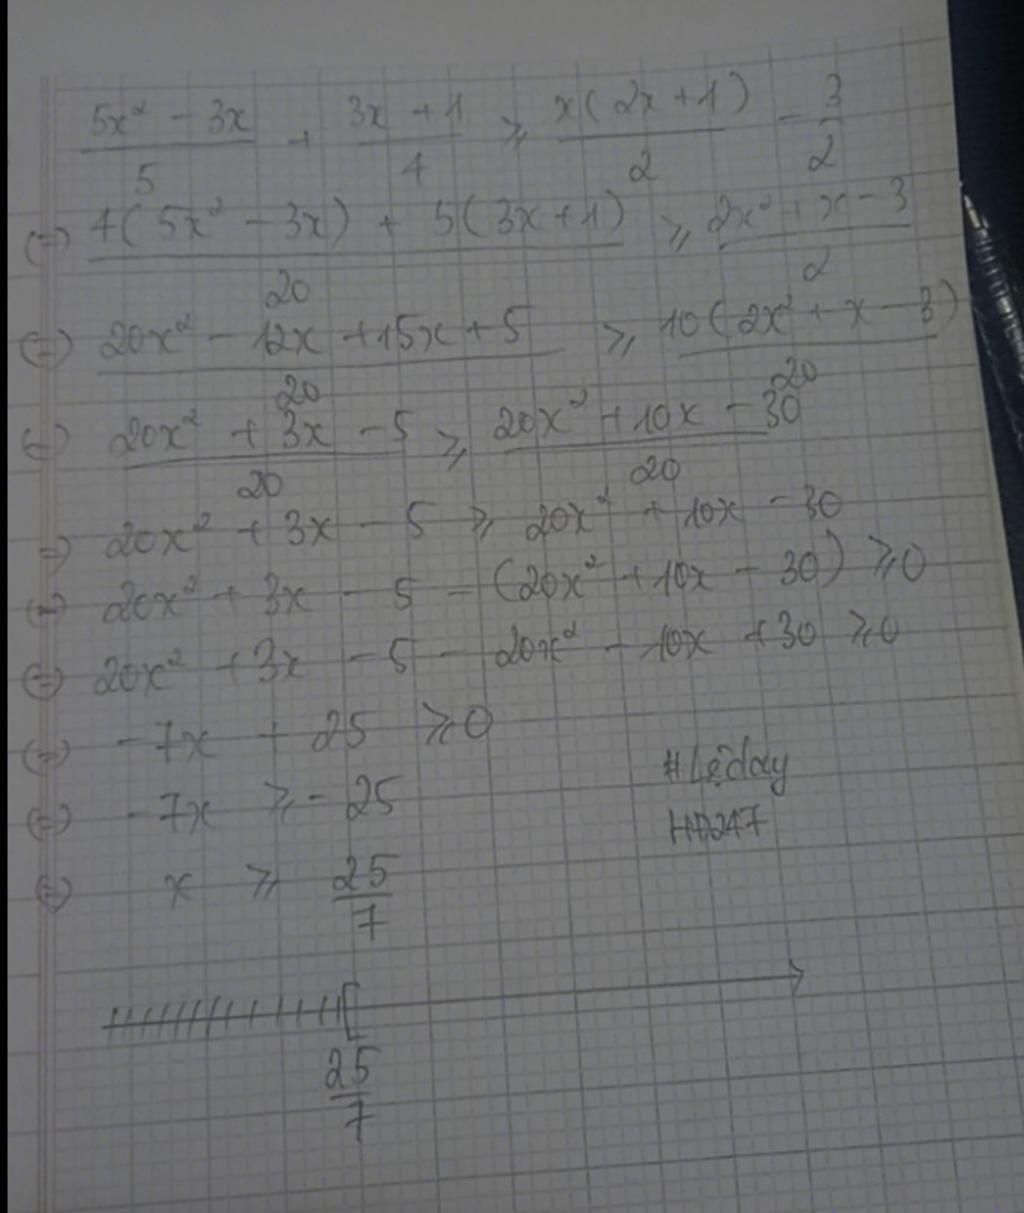 (5x² - 3x)/5 + (3x + 1)/4 ⩾ x(2x + 1)/2 - 3/2
(=) (4(5x² - 3x) + 5(3x + 1))/20 ⩾ (2x² + x - 3)/2
(=) (20x² - 12x + 15x + 5)/20 ⩾ 10(2x² + x - 3)/20
(=) (20x² + 3x - 5)/20 ⩾ (20x² + 10x - 30)/20
=) 20x² + 3x - 5 ⩾ 20x² + 10x - 30
(=) 20x² + 3x - 5 - (20x² + 10x - 30) ⩾ 0
(=) 20x² + 3x - 5 - 20x² - 10x + 30 ⩾ 0
(=) -7x + 25 ⩾ 0
(=) -7x ⩾ -25
(=) x ⩾ 25/7
#Lêday
HD247
[
25/7